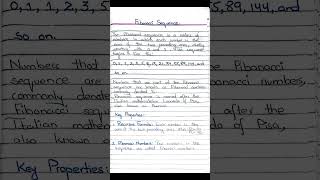 0, 1, 1, 2, 3, 5, 8, 13, 21, 34, 55, 89, 144, and
so on.
Numbers that
sequence are
commonly den
Fibonacci sequence
Italian mathem
also known
Key Properties:
Fibonacci Sequence:
The Fibonacci sequence is a series of
numbers in which each number is the
sum of the two preceding ones, usually
starting with 0 and 1. The sequence
begins like this:
0, 1, 1, 2, 3, 5, 8, 13, 21, 34, 55, 89, 144, and
so on.
Numbers that are part of the Fibonacci
sequence are known as Fibonacci numbers,
commonly denoted
Fibonacci sequence is named after the
Italian mathematician Leonardo of Pisa,
also known as Fibonacci.
Key Properties:
1. Recursive Formula: Each number is the
sum of the two preceding ones
2.
89, 144, and
Fibonacci
numbers,
after the
of Pisa,